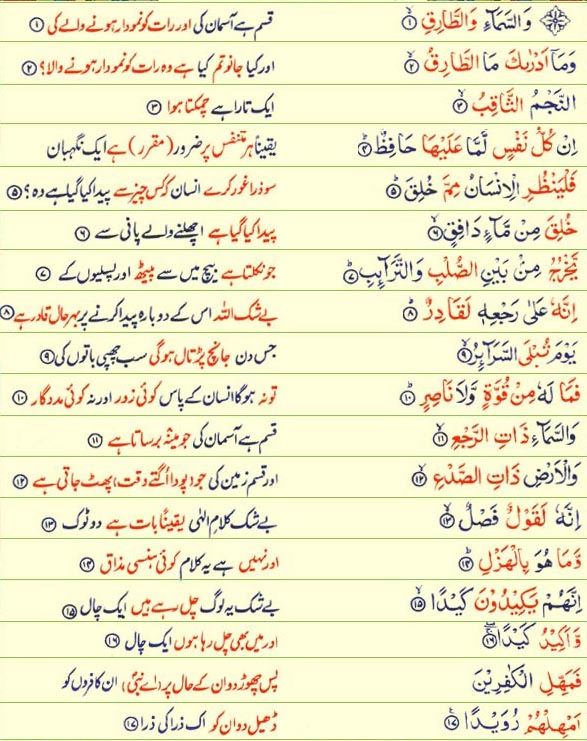 وَالسَّمَآءِ وَالطَّارِقِ ۙ‏﴿۱﴾ قسم ہے آسمان کی اور رات کو نمودار ہونے والے کی ﴿۱﴾
وَمَآ اَدْرٰىكَ مَا الطَّارِقُ ۙ‏﴿۲﴾ اور کیا جانو تم کیا ہے وہ رات کو نمودار ہونے والا؟ ﴿۲﴾
النَّجْمُ الثَّاقِبُ ۙ‏﴿۳﴾ ایک تارا ہے چمکتا ہوا ﴿۳﴾
اِنْ كُلُّ نَفْسٍ لَّمَّا عَلَيْهَا حَافِظٌ ؕ‏﴿۴﴾ یقیناً ہر متنفس پر ضرور (مقرر) ہے ایک نگہبان
فَلْيَنْظُرِ الْاِنْسَانُ مِمَّ خُلِقَ ؕ‏﴿۵﴾ سو ذرا غور کرے انسان کس چیز سے پیدا کیا گیا ہے وہ؟ ﴿۵﴾
خُلِقَ مِنْ مَّآءٍ دَافِقٍ ۙ‏﴿۶﴾ پیدا کیا گیا ہے اچھلنے والے پانی سے ﴿۶﴾
يَّخْرُجُ مِنْۢ بَيْنِ الصُّلْبِ وَالتَّرَآئِبِ ؕ‏﴿۷﴾ جو نکلتا ہے بیچ میں سے پیٹھ اور پسلیوں کے ﴿۷﴾
اِنَّهٗ عَلٰى رَجْعِهٖ لَقَادِرٌ ؕ‏﴿۸﴾ بے شک اللہ اس کے دوبارہ پیدا کرنے پر بہر حال قادر ہے ﴿۸﴾
يَوْمَ تُبْلَى السَّرَآئِرُ ۙ‏﴿۹﴾ جس دن جانچ پڑتال ہوگی سب چھپی باتوں کی ﴿۹﴾
فَمَا لَهٗ مِنْ قُوَّةٍ وَّلَا نَاصِرٍ ؕ‏﴿۱۰﴾ تو نہ ہوگا انسان کے پاس کوئی زور اور نہ کوئی مددگار ﴿۱۰﴾
وَالسَّمَآءِ ذَاتِ الرَّجْعِ ۙ‏﴿۱۱﴾ قسم ہے آسمان کی جو مینہ برساتا ہے ﴿۱۱﴾
وَالْاَرْضِ ذَاتِ الصَّدْعِ ۙ‏﴿۱۲﴾ اور قسم زمین کی جو (پودا اُگتے وقت) پھٹ جاتی ہے ﴿۱۲﴾
اِنَّهٗ لَقَوْلٌ فَصْلٌ ۙ‏﴿۱۳﴾ بے شک کلام الٰہی یقیناً بات ہے دو ٹوک ﴿۱۳﴾
وَّمَا هُوَ بِالْهَزْلِ ؕ‏﴿۱۴﴾ اور نہیں ہے یہ کلام کوئی ہنسی مذاق ﴿۱۴﴾
اِنَّهُمْ يَكِيْدُوْنَ كَيْدًا ۙ‏﴿۱۵﴾ بے شک یہ لوگ چل رہے ہیں ایک چال ﴿۱۵﴾
وَّاَكِيْدُ كَيْدًا ۖ‏﴿۱۶﴾ اور میں بھی چل رہا ہوں ایک چال ﴿۱۶﴾
فَمَهِّلِ الْكٰفِرِيْنَ پس چھوڑ دو ان کے حال پر (اے نبیؐ) ان کافروں کو
اَمْهِلْهُمْ رُوَيْدًا ‏﴿۱۷﴾ ڈھیل دو ان کو اک ذرا کی ذرا ﴿۱۷﴾